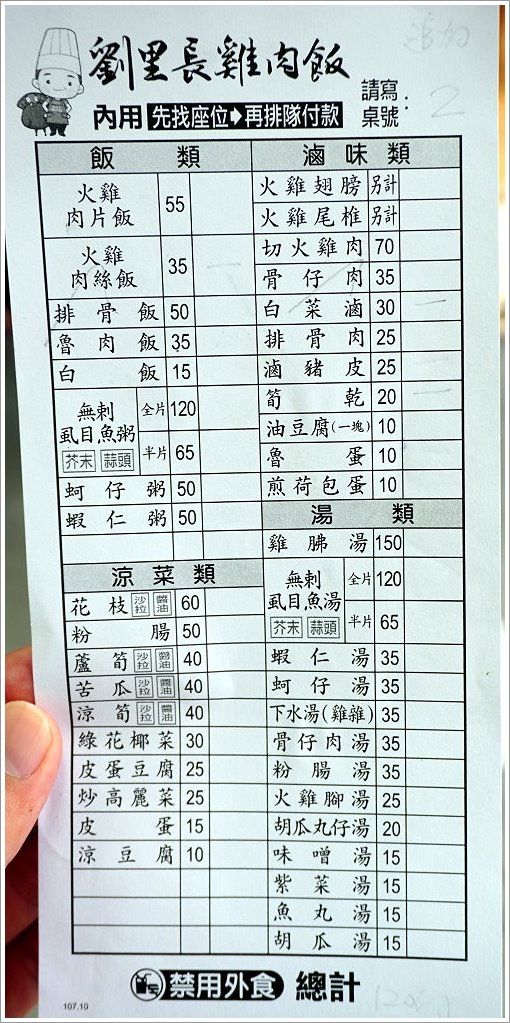 追加
劉里長雞肉飯
內用 先找座位➡再排隊付款
請寫桌號: 2
飯 類
火雞肉片飯 55
火雞肉絲飯 35 一
排骨飯 50
魯肉飯 35
白飯 15
無刺虱目魚粥 芥末 蒜頭 全片 120
半片 65
蚵仔粥 50
蝦仁粥 50
涼菜類
花枝 沙拉 醬油 60
粉腸 50
蘆筍 沙拉 醬油 40
苦瓜 沙拉 醬油 40
涼筍 沙拉 醬油 40
綠花椰菜 30
皮蛋豆腐 25
炒高麗菜 25
皮蛋 15
涼豆腐 10
滷味類
火雞翅膀 另計
火雞尾椎 另計
切火雞肉 70
骨仔肉 35
白菜滷 30 一
排骨肉 25
滷豬皮 25
筍乾 20 一
油豆腐(一塊) 10
魯蛋 10
煎荷包蛋 10
湯 類
雞胇湯 150
無刺虱目魚湯 芥末 蒜頭 全片 120
半片 65
蝦仁湯 35
蚵仔湯 35
下水湯(雞雜) 35
骨仔肉湯 35
粉腸湯 35
火雞腳湯 25
胡瓜丸仔湯 20
味噌湯 15
紫菜湯 15
魚丸湯 15
胡瓜湯 15
禁用外食 總計
107.10